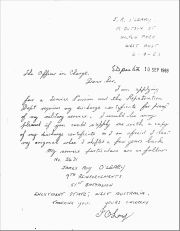 J. R. O'LEARY
WEST AUST
The Officer in Charge,
10 SEP 1968
Dear Sir,
I am applying
for a Service Pension and the Repatriation
Dept require my discharge certificate for proof
of my military service. I would be very
pleased if you could supply me with a copy
of my discharge certificate as I am afraid I lost
my original when I shifted a few years back
My service particulars are as follows
No 2621
JAMES ROY O'LEARY
7TH REINFORCEMENTS
51ST BATTALION
ENLISTMENT STATE, WEST AUSTRALIA.
THANKING YOU YOURS SINCERELY